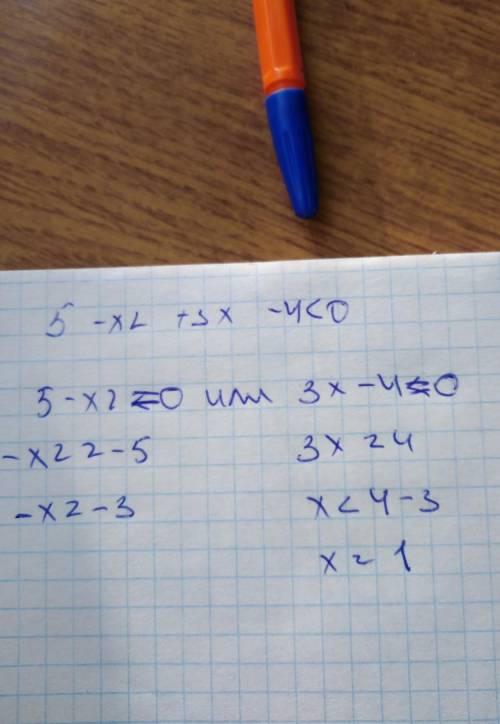 5 -x2 +3x -4<0
5-x2 =0 или 3x-4≤0
-x2 2-5 3x 24
-x2-3 x<4-3
x2 1